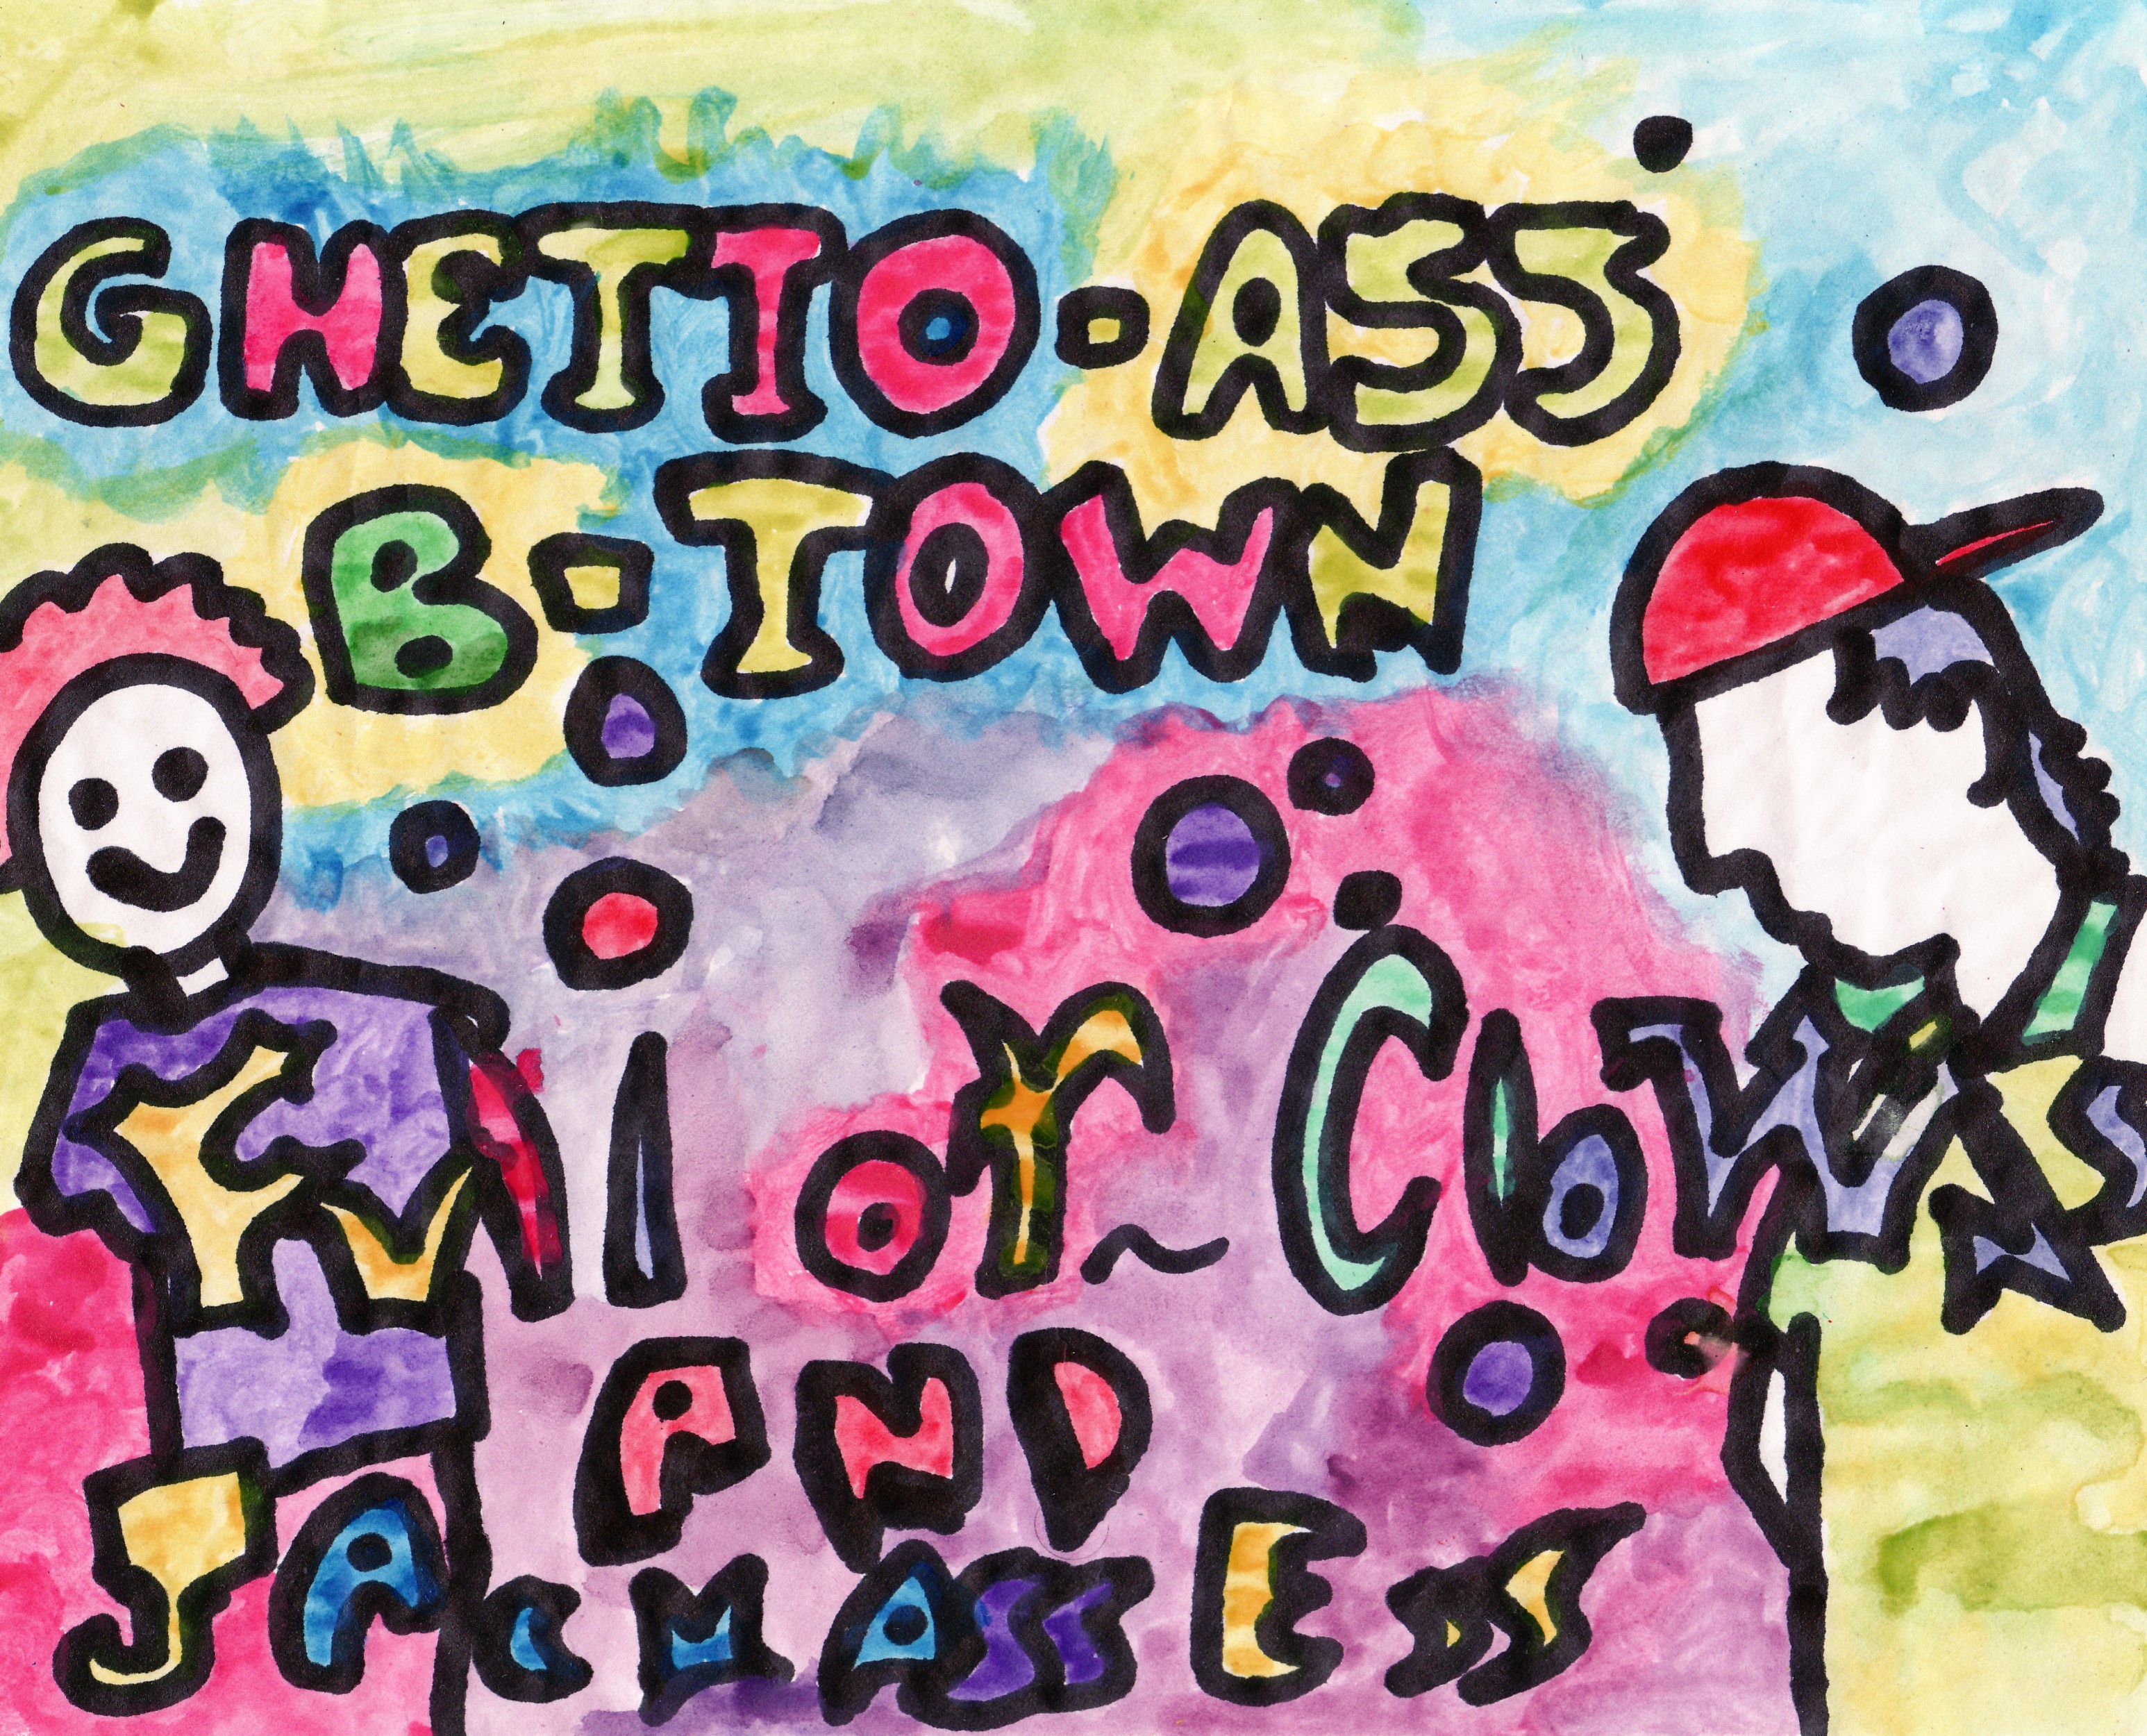 GHETTO-ASS
B-TOWN
FUll of ClowNS
AND
JAcKASSESS